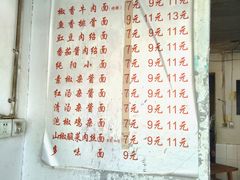 椒香牛肉面 7元 9元 11元
鱼香排骨面 9元 11元 13元
豇豆肉绍面 7元 9元 11元
番茄酱肉绍面 7元 9元 11元
纯阳小面 7元 9元 11元
素椒杂酱面 7元 9元 11元
红汤杂酱面 7元 9元 11元
清汤杂酱面 7元 9元 11元
泡椒鸡杂面 7元 9元 11元
山椒酸菜肉丝面 7元 9元 11元
多味面 9元